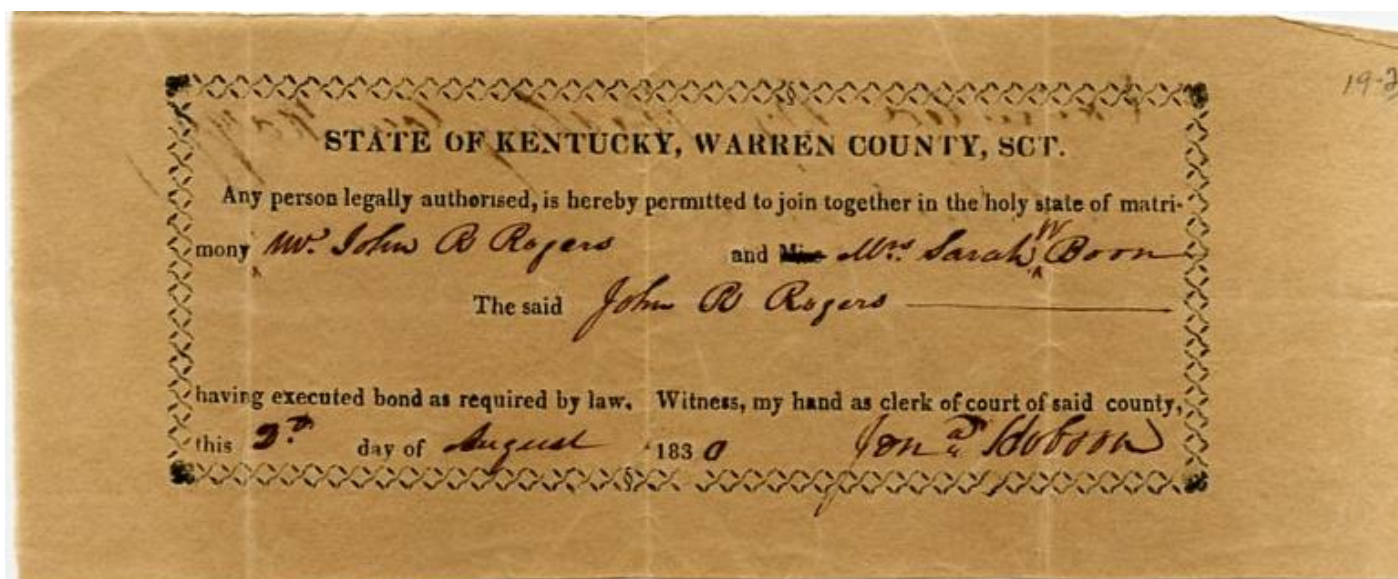 19-3
STATE OF KENTUCKY, WARREN COUNTY, SCT.
Any person legally authorised, is hereby permitted to join together in the holy state of matri-
mony Mr. John B Rogers and Miss Mrs. Sarah W Boon
The said John B Rogers
having executed bond as required by law. Witness, my hand as clerk of court of said county,
this 2d day of August 1830 Jona Hobson